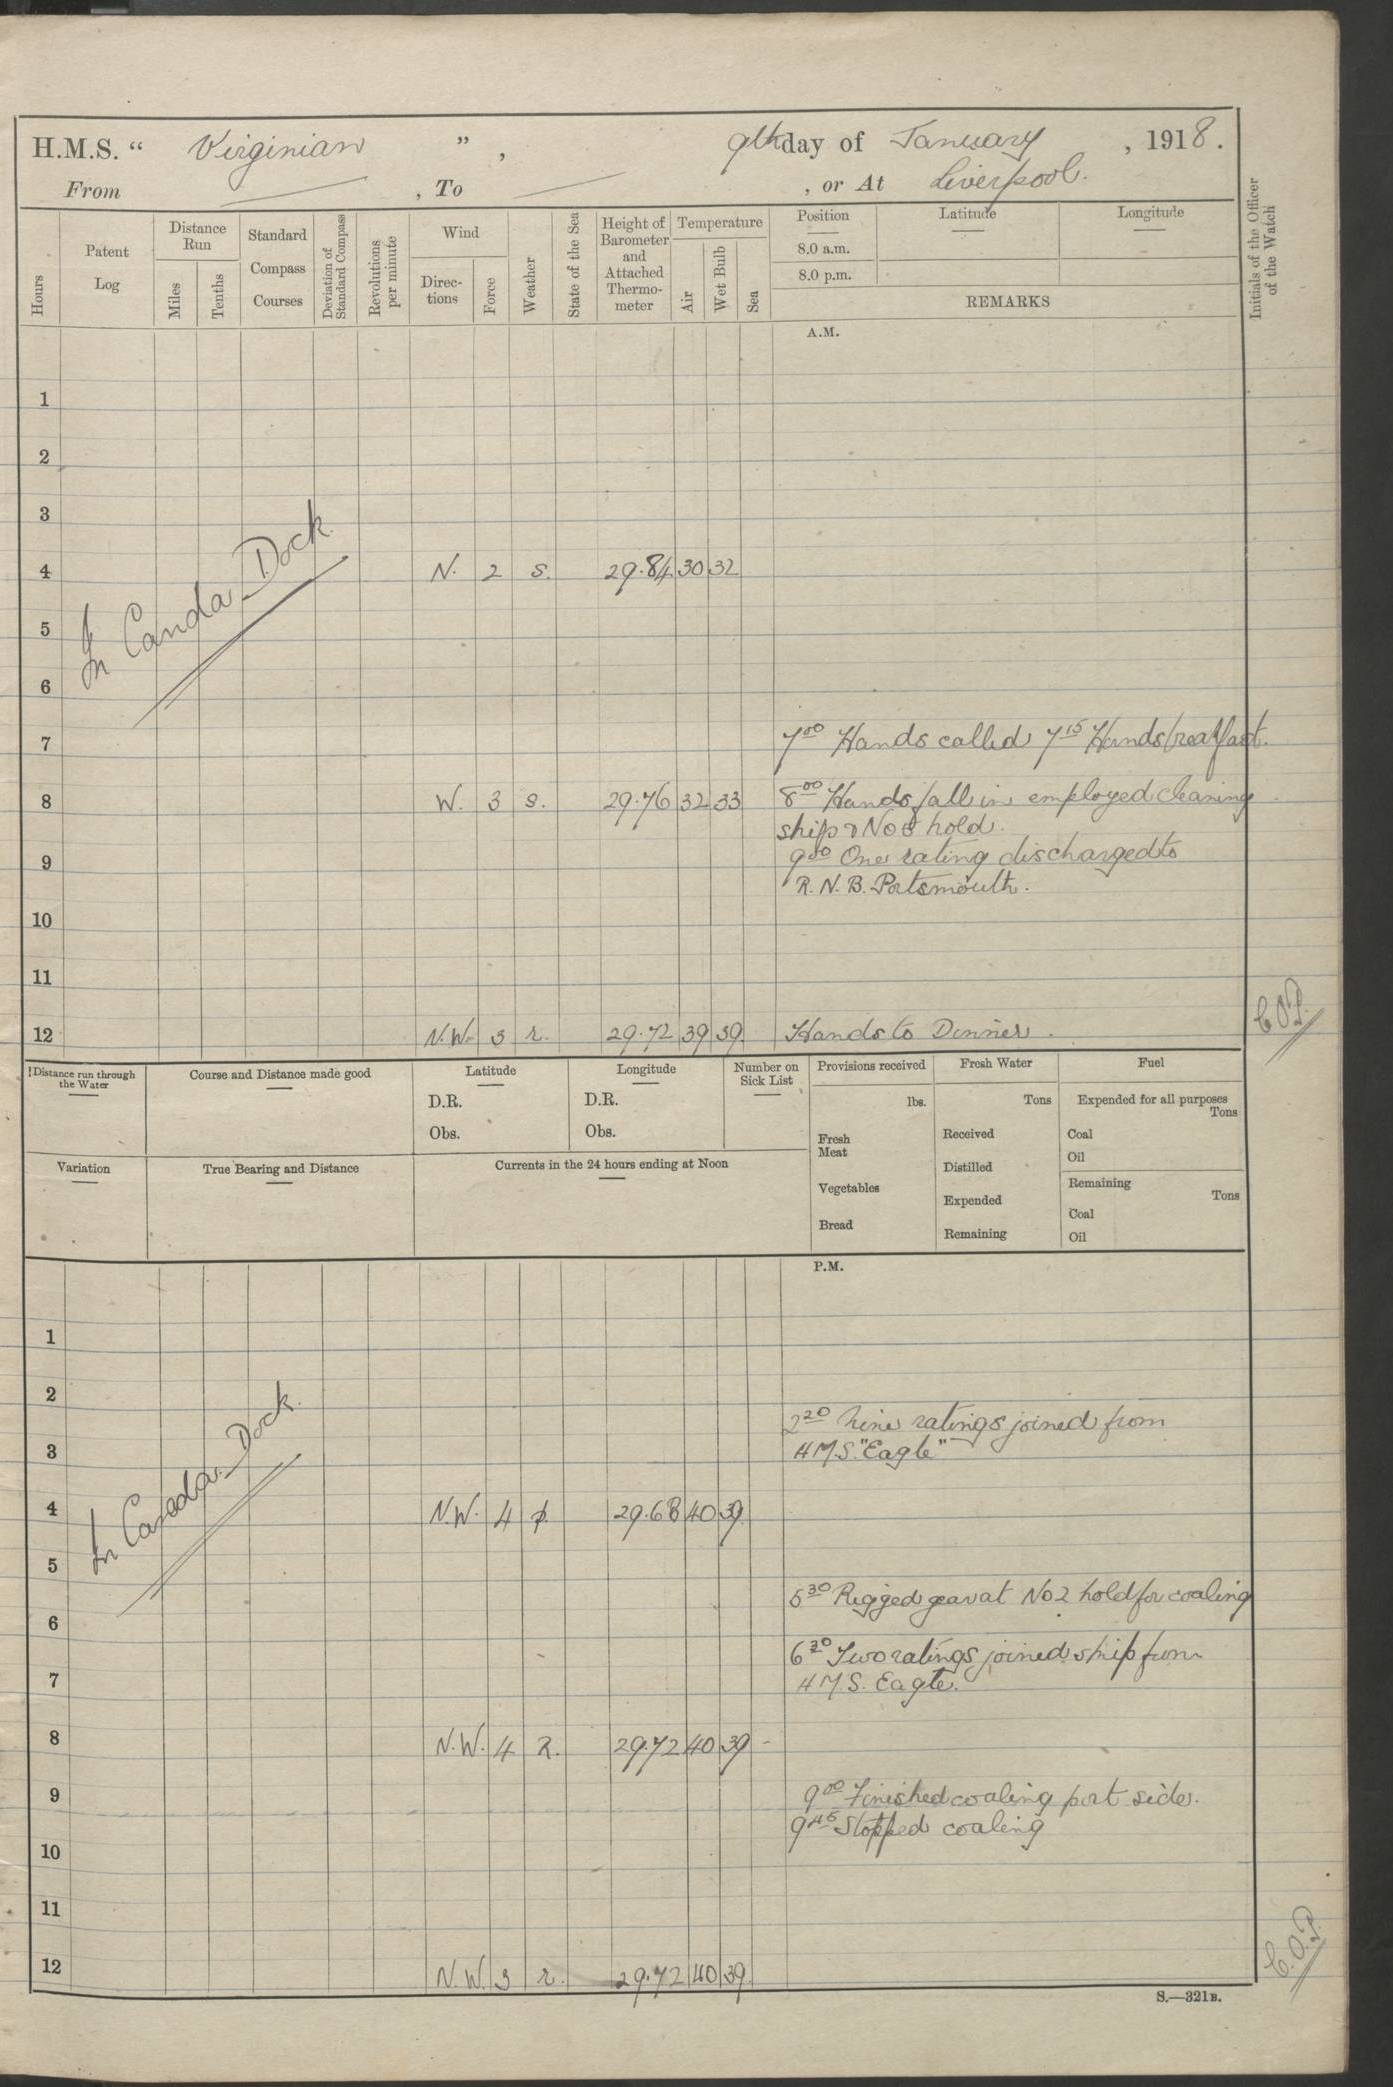 H.M.S. “ Virginian ” , 9th day of January , 1918.
From , To , or At Liverpool.
Hours
Patent Log
Distance Run
Miles
Tenths
Standard Compass Courses
Deviation of Standard Compass
Revolutions per minute
Wind
Directions
Force
Weather
State of the Sea
Height of Barometer and Attached Thermometer
Temperature
Air
Wet Bulb
Sea
Position
8.0 a.m.
8.0 p.m.
Latitude
Longitude
REMARKS
Initials of the Officer of the Watch
A.M.
1
2
3
In Canda Dock.
4 N. 2 s. 29.84 30 32
5
6
7 7 00 Hands called 7 15 Hands breakfast.
8 W. 3 s. 29.76 32 33 8 00 Hands fall in employed cleaning
ship & No 8 hold.
9 9 00 One rating discharged to
R.N.B. Portsmouth.
10
11
12 N.W. 3 r. 29.72 39 39 Hands to Dinner.
C.O.P.
Distance run through the Water
Course and Distance made good
Latitude
D.R.
Obs.
Longitude
D.R.
Obs.
Number on Sick List
Provisions received
lbs.
Fresh Meat
Vegetables
Bread
Fresh Water
Tons
Received
Distilled
Expended
Remaining
Fuel
Expended for all purposes
Tons
Coal
Oil
Remaining
Tons
Coal
Oil
Variation
True Bearing and Distance
Currents in the 24 hours ending at Noon
P.M.
1
2
2 20 Nine ratings joined from
3 H.M.S. "Eagle"
In Canada Dock.
4 N.W. 4 29.68 40 39
5
5 30 Rigged gear at No 2 hold for coaling
6
6 30 Two ratings joined ship from
7 H.M.S. Eagle.
8 N.W. 4 R. 29.72 40 39 -
9 9 00 Finished coaling port side.
9 45 Stopped coaling
10
11
12 N.W. 3 r. 29.72 40 39
C.O.P.
S.—321B.